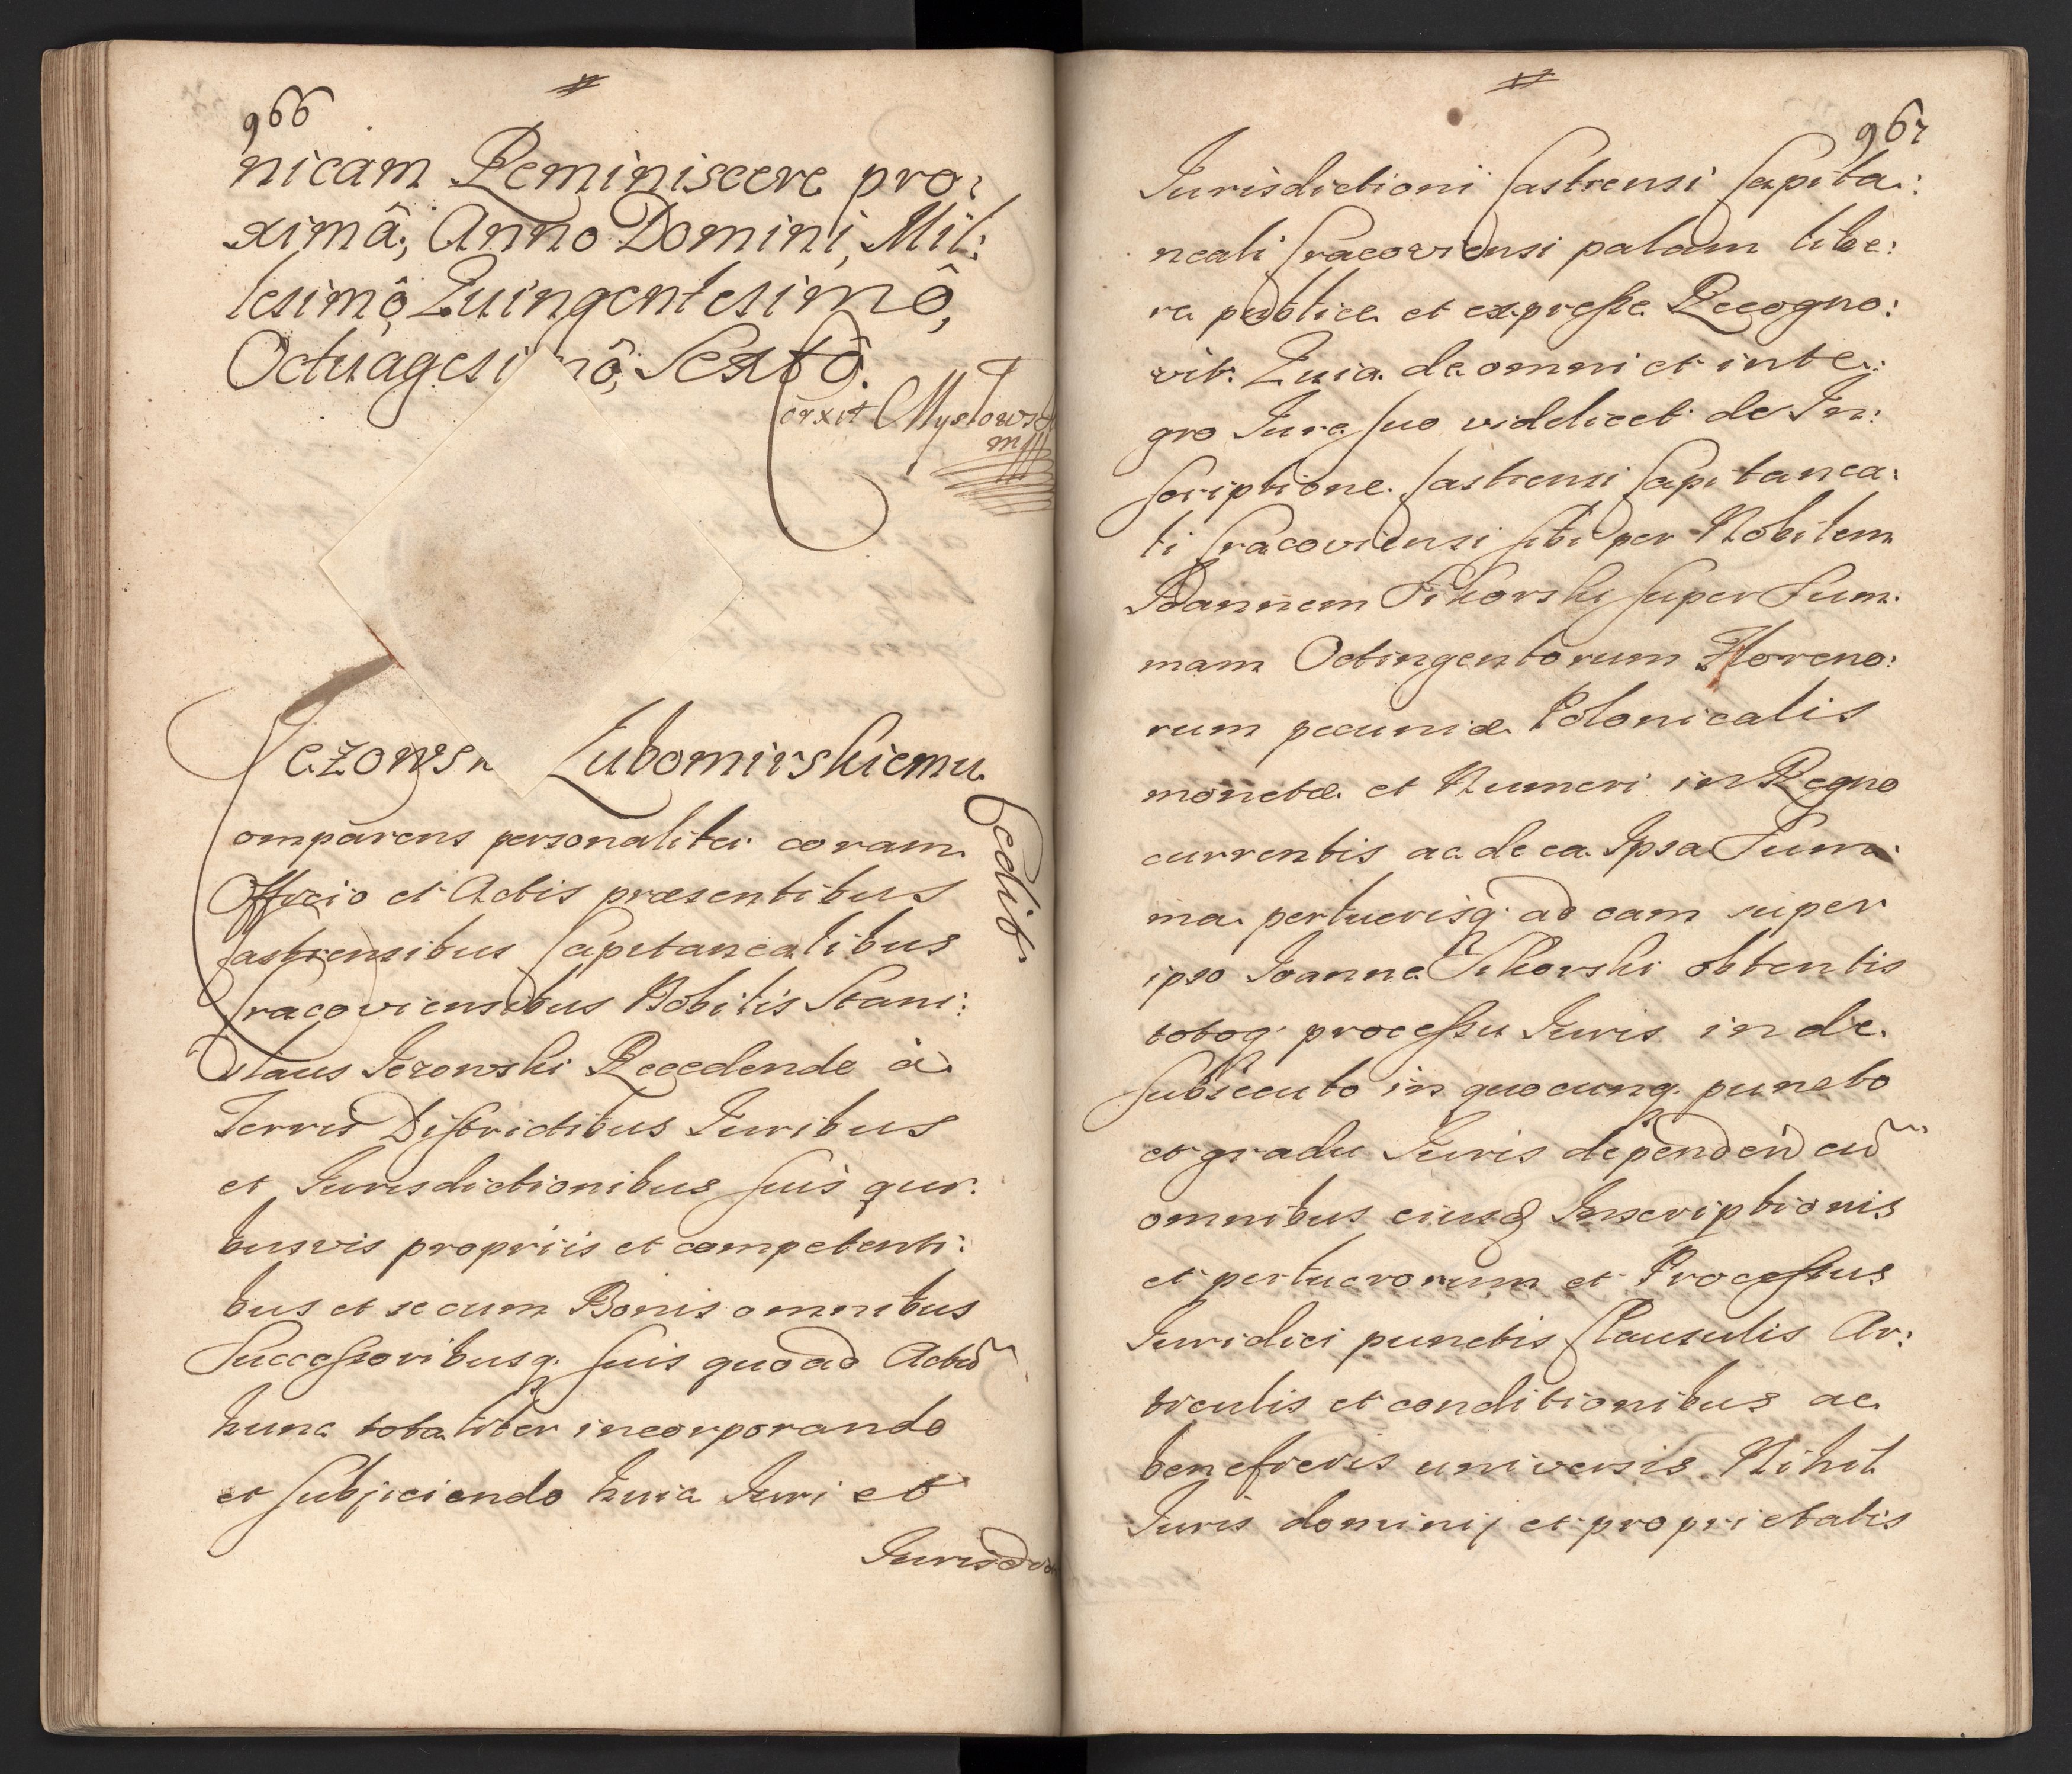 966
nicam Reminiscere pro:
ximâ; Anno Domini, Mil:
lesimô Quingentesimô,
Octuagesi mô, Sextô.
Corxit Mystowsk
mp
Jezowsk Lubomirskiemu
Cedit
Comparens personaliter coram
Officio et Actis præsentibus
Castrensibus Capitanealibus
Cracoviensibus Nobilis Stani:
slaus Jezowski Recedendo à
Terris Districtibus Juribus
et Jurisdictionibus suis qui:
busvis propriis et competenti:
bus et se cum Bonis omnibus
Successoribusq. suis quoad Actũ
hunc totaliter incorporando
et subjiciendo huic Juri et
Jurisdic
967
Jurisdictioni Castrensi Capita:
neali Cracoviensi palam libe:
re publice et expresse Recogno:
vit. Quia de omni et inte:
gro Jure suo videlicet de In:
scriptione Castrensi Capitanea:
li Cracoviensi sibi per Nobilem
Joannem Sikorski super Sum:
mam Octingentorum Floreno:
rum pecuniæ Polonicalis
monetæ et Numeri in Regno
currentis ac de ea Ipsa Sum:
ma pertuerisq. ad eam super
ipso Joanne Sikorski obtentis
totoq. processu Juris inde
subsecuto in quocunq. puncto
et gradu Juris dependen cũ
omnibus eiusd Inscriptionis
et pertuerorum et Processus
Juridici punctis Clausulis Ar:
ticulis et conditionibus ac
beneficiis universis Nihil
Juris dominij et proprietatis